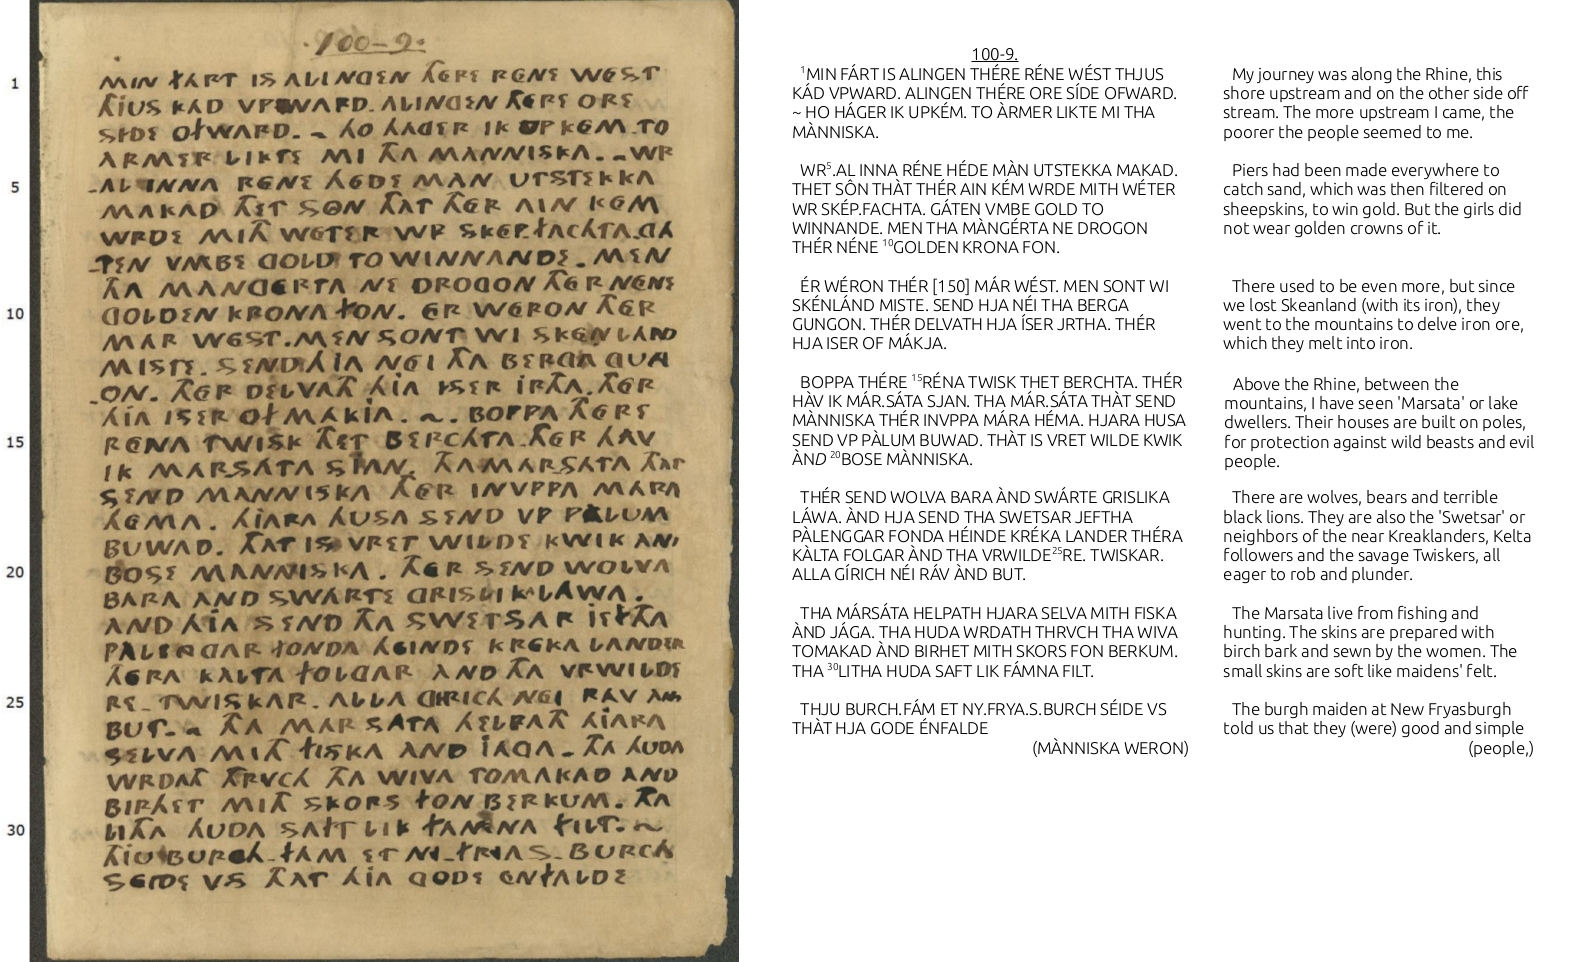 100-9.
1 MIN FÁRT IS ALINGEN THÉRE RÉNE WÉST
THJUS KÁD VPWARD. ALINGEN THÉRE ORE
SÍDE OFWARD. ~ HO HÁGER IK UPKÉM. TO
ÀRMER LIKTE MI THA MÀNNISKA. ~ WR
5 .AL INNA RÉNE HÉDE MÀN UTSTEKKA
MAKAD THET SÔN THÀT THÉR AIN KÉM
WRDE MITH WÉTER WR SKÉP.FACHTA. GÁ
TEN VMBE GOLD TO WINNANDE. MEN
THA MÀNGÉRTA NE DROGON THÉR NÉNE
10 GOLDEN KRONA FON. ÉR WÉRON THÉR
MÁR WÉST. MEN SONT WI SKÉNLÁND
MISTE. SEND HJA NÉI THA BERGA GUNG
ON. THÉR DELVATH HJA ÍSER JRTHA. THÉR
HJA ISER OF MÁKJA. ~. BOPPA THÉRE
15 RÉNA TWISK THET BERCHTA. THÉR HÀV
IK MÁRSÁTA SJAN. THA MÁRSÁTA THÀT
SEND MÀNNISKA THÉR INVPPA MÁRA
HÉMA. HJARA HUSA SEND VP PÀLUM
BUWAD. THÀT IS VRET WILDE KWIK ÀND
20 BOSE MÀNNISKA. THÉR SEND WOLVA
BARA ÀND SWÁRTE GRISLIKA LÁWA.
ÀND HJA SEND THA SWETSAR JEFTHA
PÀLENGGAR FONDA HÉINDE KRÉKA LANDER
THÉRA KÀLTA FOLGAR ÀND THA VRWILDE
25 RE. TWISKAR. ALLA GÍRICH NÉI RÁV ÀND
BUT. ~ THA MÁRSÁTA HELPATH HJARA
SELVA MITH FISKA ÀND JÁGA. THA HUDA
WRDATH THRVCH THA WIVA TOMAKAD ÀND
BIRHET MITH SKORS FON BERKUM. THA
30 LITHA HUDA SAFT LIK FÁMNA FILT. ~
THJU BURCH.FÁM ET NY.FRYAS.BURCH
SÉIDE VS THÀT HJA GODE ÉNFALDE
100-9.
1MIN FÁRT IS ALINGEN THÉRE RÉNE WÉST THJUS
KÁD VPWARD. ALINGEN THÉRE ORE SÍDE OFWARD.
~ HO HÁGER IK UPKÉM. TO ÀRMER LIKTE MI THA
MÀNNISKA.
WR5.AL INNA RÉNE HÉDE MÀN UTSTEKKA MAKAD.
THET SÔN THÀT THÉR AIN KÉM WRDE MITH WÉTER
WR SKÉP.FACHTA. GÁTEN VMBE GOLD TO
WINNANDE. MEN THA MÀNGÉRTA NE DROGON
THÉR NÉNE 10GOLDEN KRONA FON.
ÉR WÉRON THÉR [150] MÁR WÉST. MEN SONT WI
SKÉNLÁND MISTE. SEND HJA NÉI THA BERGA
GUNGON. THÉR DELVATH HJA ÍSER JRTHA. THÉR
HJA ISER OF MÁKJA.
BOPPA THÉRE 15RÉNA TWISK THET BERCHTA. THÉR
HÀV IK MÁR.SÁTA SJAN. THA MÁR.SÁTA THÀT SEND
MÀNNISKA THÉR INVPPA MÁRA HÉMA. HJARA HUSA
SEND VP PÀLUM BUWAD. THÀT IS VRET WILDE KWIK
ÀND 20BOSE MÀNNISKA.
THÉR SEND WOLVA BARA ÀND SWÁRTE GRISLIKA
LÁWA. ÀND HJA SEND THA SWETSAR JEFTHA
PÀLENGGAR FONDA HÉINDE KRÉKA LANDER THÉRA
KÀLTA FOLGAR ÀND THA VRWILDE25RE. TWISKAR.
ALLA GÍRICH NÉI RÁV ÀND BUT.
THA MÁRSÁTA HELPATH HJARA SELVA MITH FISKA
ÀND JÁGA. THA HUDA WRDATH THRVCH THA WIVA
TOMAKAD ÀND BIRHET MITH SKORS FON BERKUM.
THA 30LITHA HUDA SAFT LIK FÁMNA FILT.
THJU BURCH.FÁM ET NY.FRYA.S.BURCH SÉIDE VS
THÀT HJA GODE ÉNFALDE
(MÀNNISKA WERON)
My journey was along the Rhine, this
shore upstream and on the other side off
stream. The more upstream I came, the
poorer the people seemed to me.
Piers had been made everywhere to
catch sand, which was then filtered on
sheepskins, to win gold. But the girls did
not wear golden crowns of it.
There used to be even more, but since
we lost Skeanland (with its iron), they
went to the mountains to delve iron ore,
which they melt into iron.
Above the Rhine, between the
mountains, I have seen 'Marsata' or lake
dwellers. Their houses are built on poles,
for protection against wild beasts and evil
people.
There are wolves, bears and terrible
black lions. They are also the 'Swetsar' or
neighbors of the near Kreaklanders, Kelta
followers and the savage Twiskers, all
eager to rob and plunder.
The Marsata live from fishing and
hunting. The skins are prepared with
birch bark and sewn by the women. The
small skins are soft like maidens' felt.
The burgh maiden at New Fryasburgh
told us that they (were) good and simple
(people,)